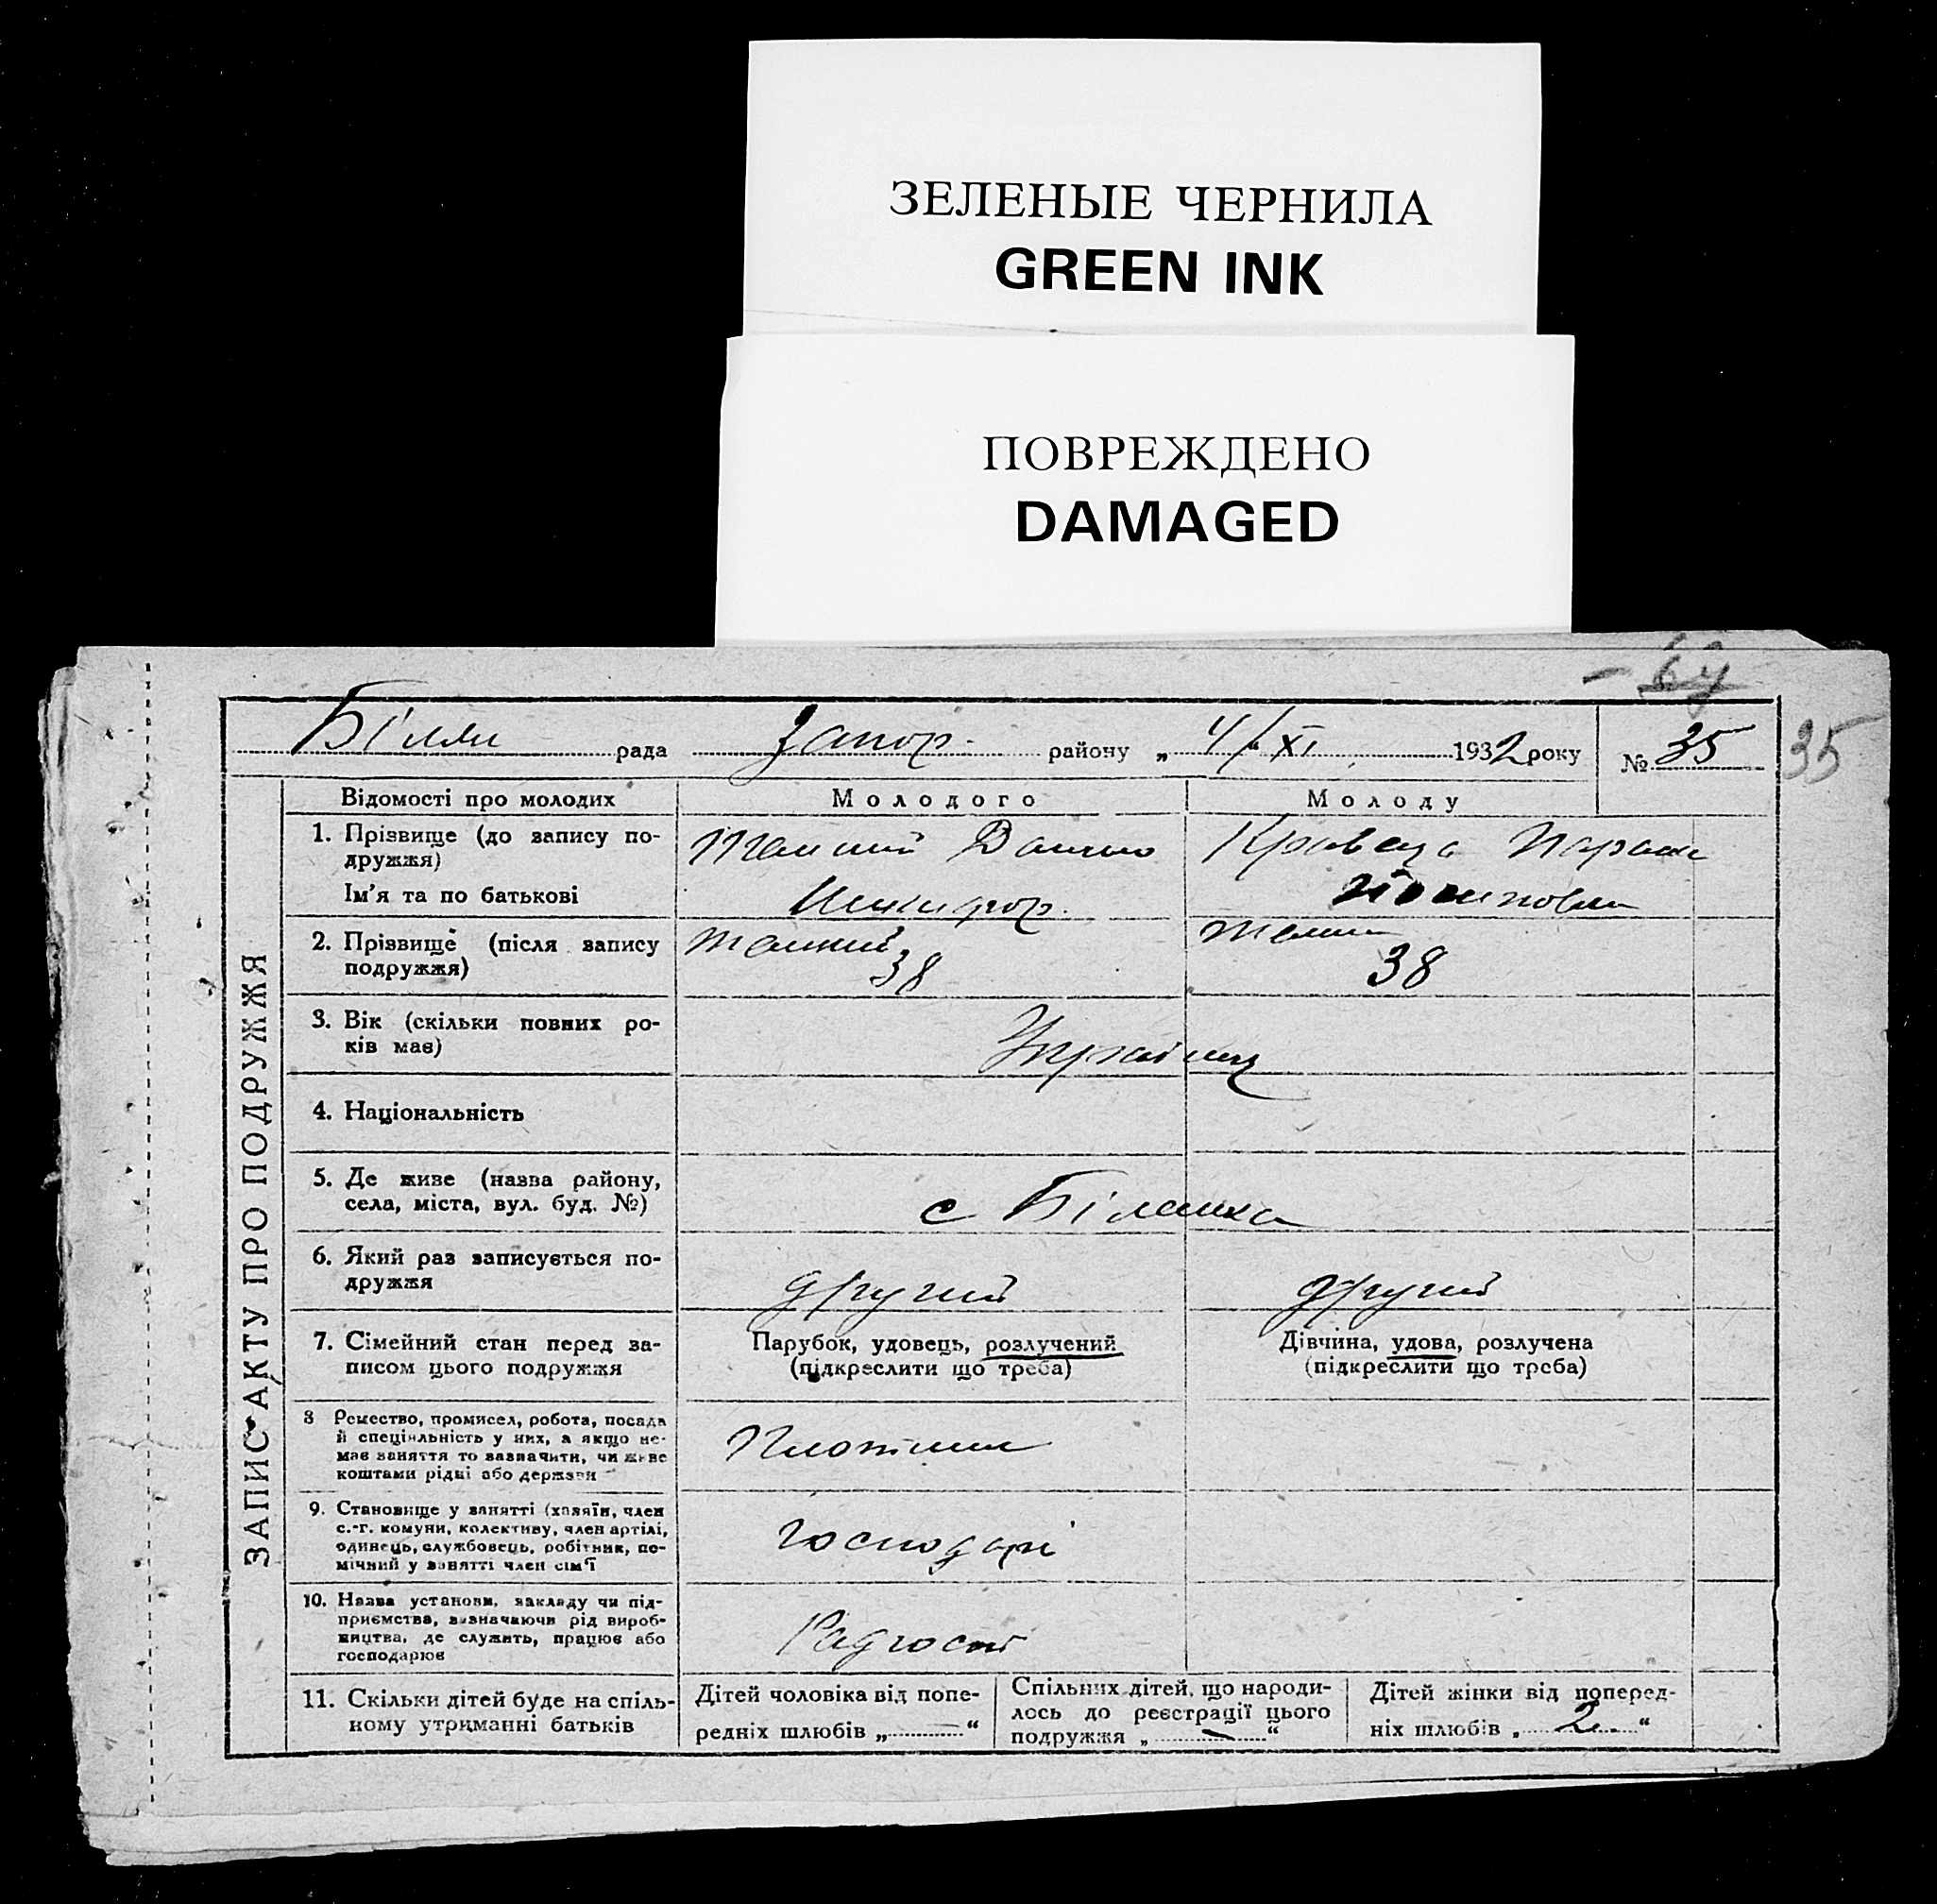 ЗЕЛЕНЫЕ ЧЕРНИЛА
GREEN INK
ПОВРЕЖДЕНО
DAMAGED
рада Запор. району „ 4/XI 1932 року № 35
35
ЗАПИС АКТУ ПРО ПОДРУЖЖЯ
Відомості про молодих
Молодого
Молоду
1. Прізвище (до запису по-
дружжя)
Ім'я та по батькові
Данило
Кравець
2. Прізвище (після запису
подружжя)
38
38
3. Вік (скільки повних ро-
ків має)
4. Національність
5. Де живе (назва району,
села, міста, вул. буд. №)
с Біленька
6. Який раз записується по-
дружжя
другий
другий
7. Сімейний стан перед за-
писом цього подружжя
Парубок, удовець, розлучений
(підкреслити що треба)
Дівчина, удова, розлучена
(підкреслити що треба)
8 Ремество, промисел, робота, посада
й спеціяльність у них, а якщо не-
має заняття то зазначити, чи живе
коштами рідні або держави
9. Становище у занятті (хазяїн, член
с.-г. комуни, колективу, член артілі,
одинець, службовець, робітник, по-
мічний у занятті член сім'ї
10. Назва установи, закладу чи під-
приємства, визначаючи рід вироб-
ництва, де служить, працює або
господарює
11. Скільки дітей буде на спіль-
ному утриманні батьків
Дітей чоловіка від попе-
редніх шлюбів „ — “
Спільних дітей, що народи-
лось до реєстрації цього
подружжя „ — “
Дітей жінки від поперед-
ніх шлюбів „ 2 “